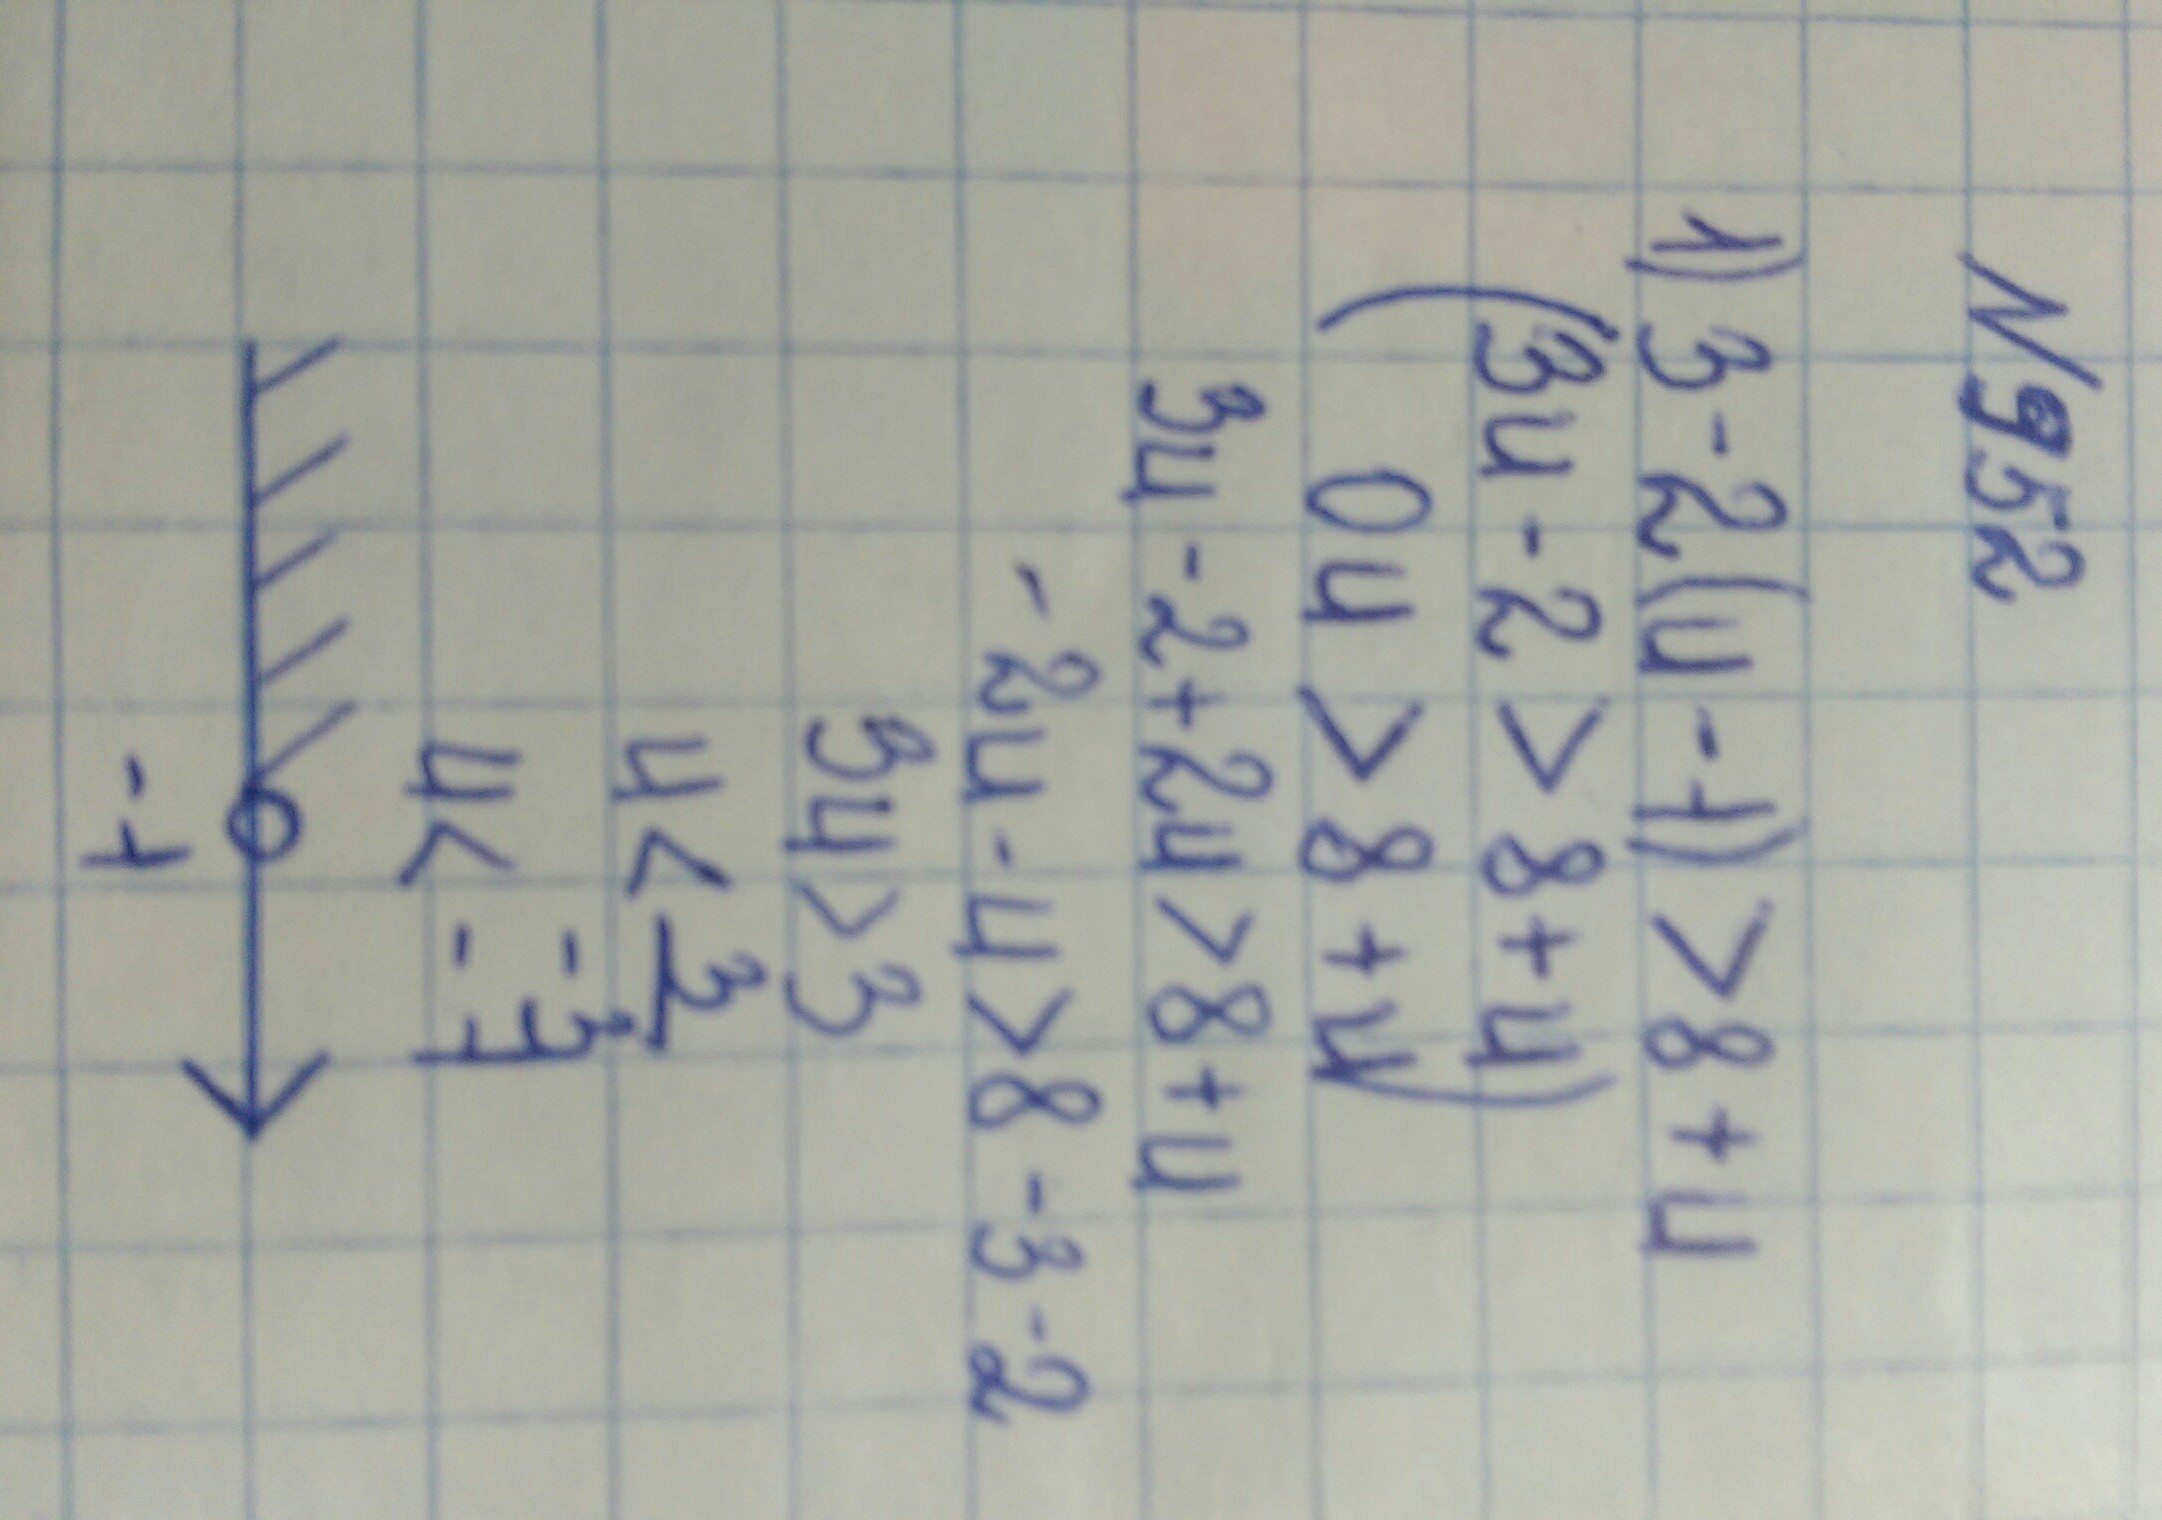 N952
1) 3-2(u-1)>8+u
(3u-2>8+u)
0u>8+u)
3u-2+2u>8+u
-2u-u>8-3-2
3u>3
u<3
-3
u<-1
-1